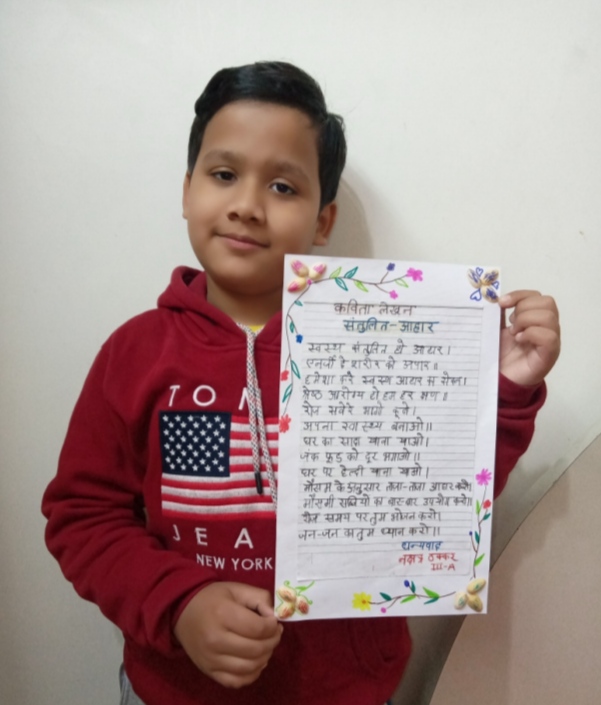 TOM
JEA
NEW YORK
कविता लेखन
संतुलित-आहार
स्वस्थ संतुलित हो आहार।
एनर्जी दे शरीर को अपार॥
हमेशा करे स्वस्थ आहार
श्रेष्ठ आरोग्य हो हम हर क्षण॥
रोज सवेरे भागो कूदो।
अपना स्वास्थ्य बनाओ॥
घर का सादा खाना खाओ।
जंक फूड को दूर भगाओ॥
घर पर हेल्दी खाना खाओ।
मौसम के अनुसार ताजा-ताजा आहार करो।
मौसमी सब्जियों का बार-बार उपयोग करो॥
समय पर तुम भोजन करो।
जन-जन तुम ध्यान करो॥
धन्यवाद
ठक्कर
III-A